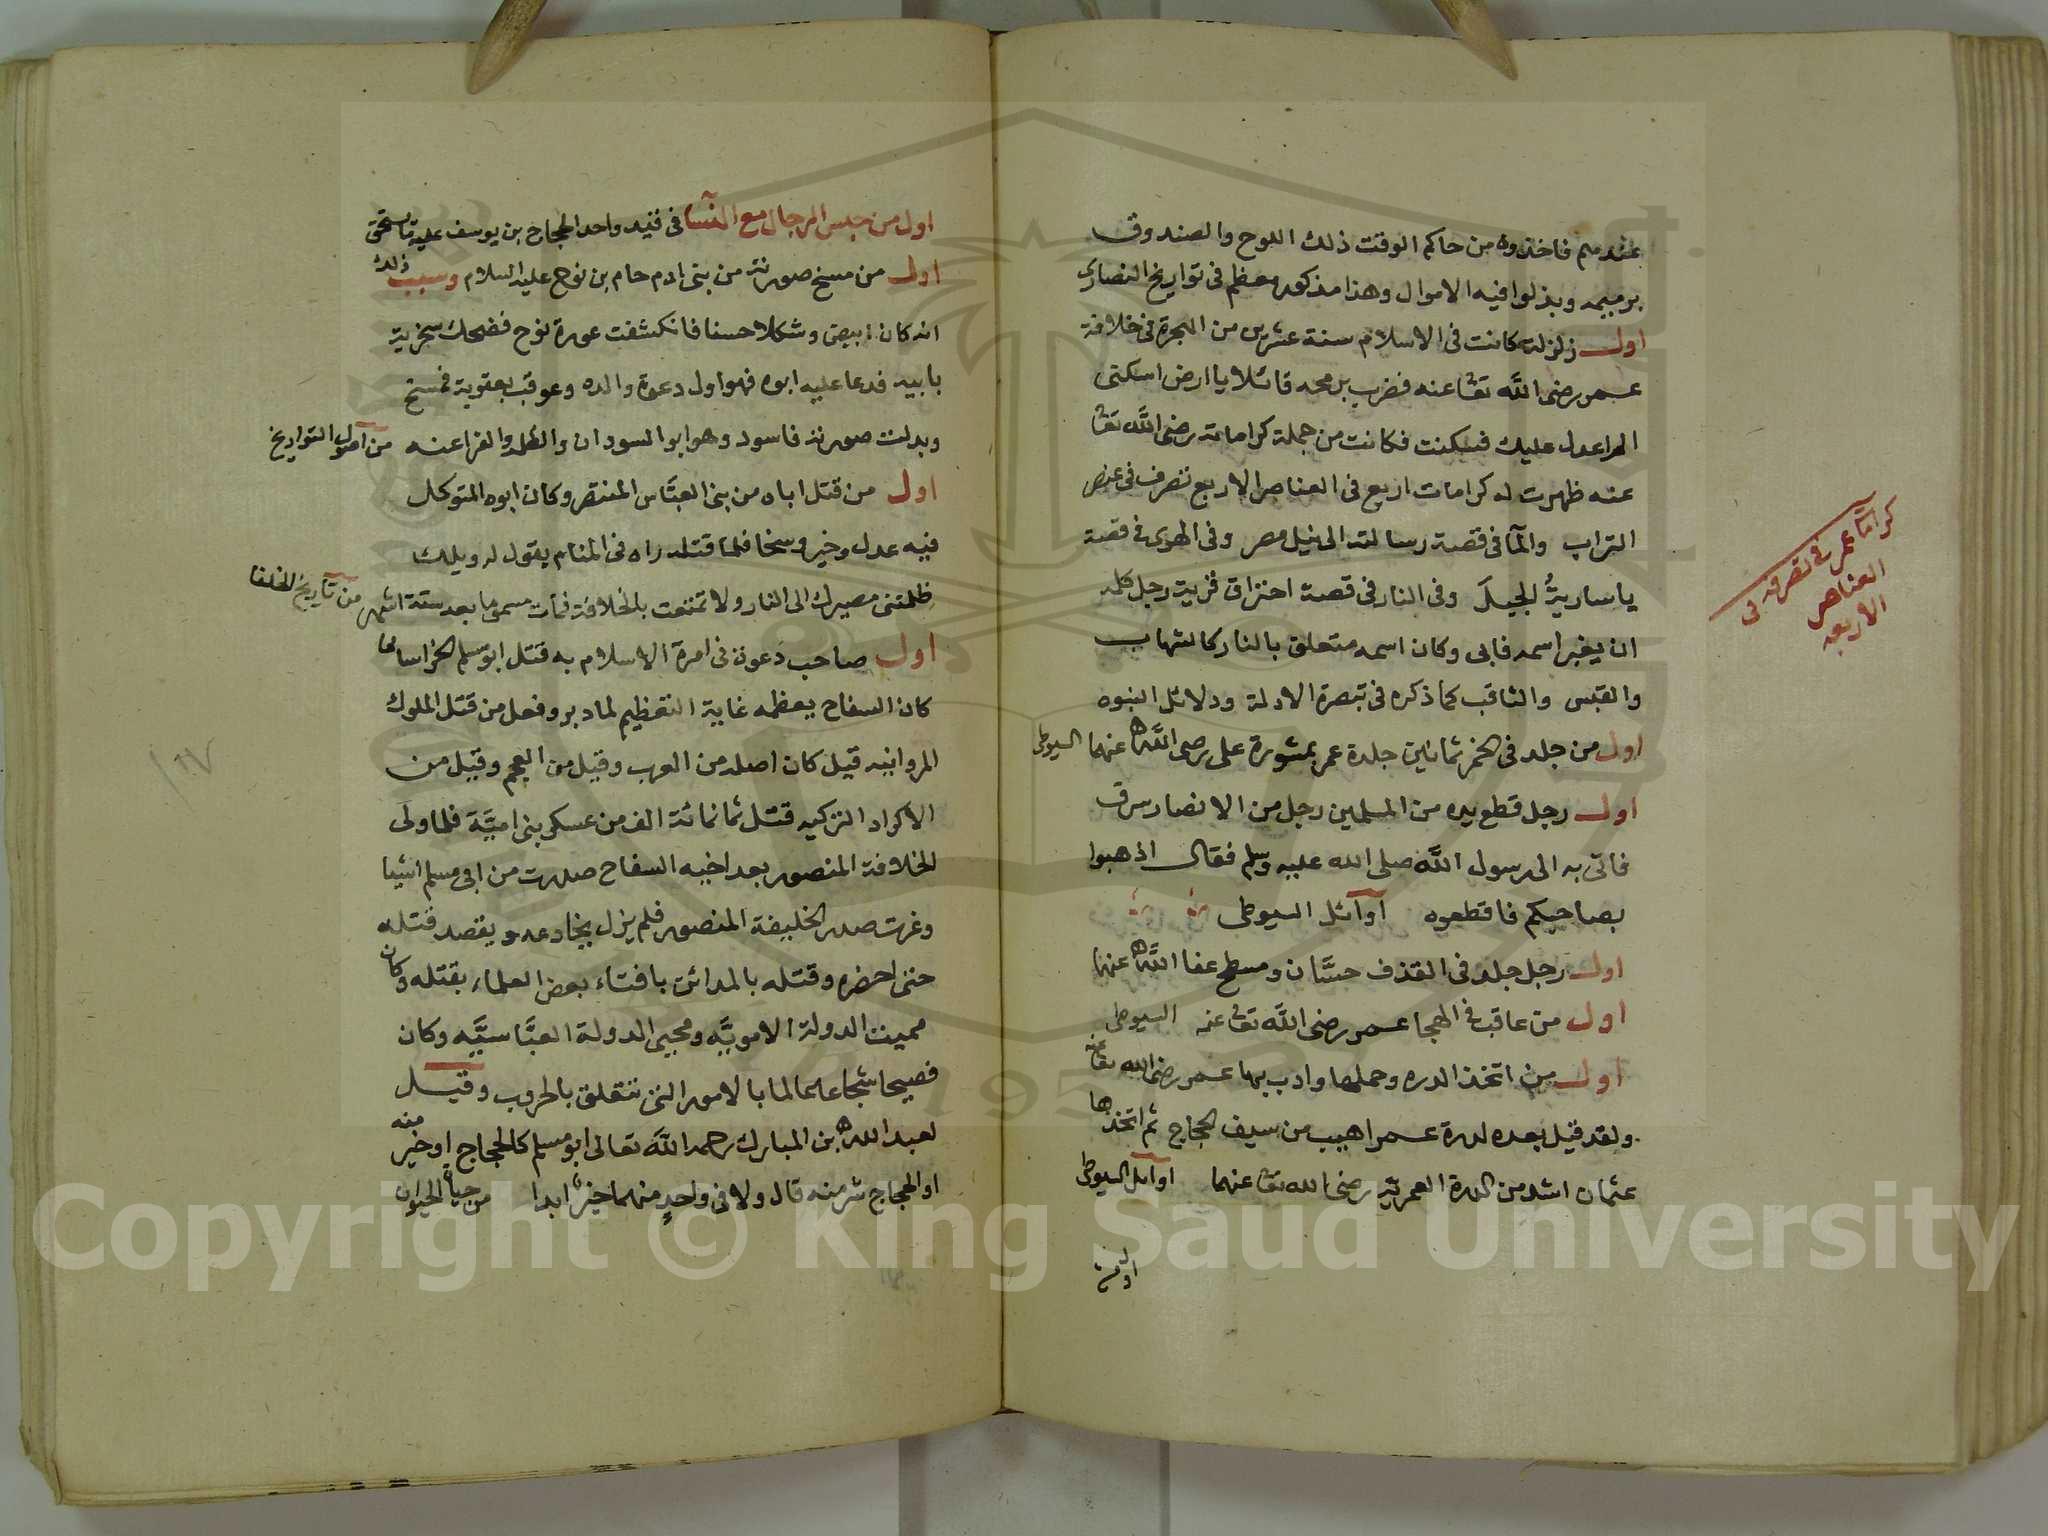 عندهم فاخذوه من حاكم الوقت ذلك اللوح والصندوق
وبذلوا فيه الاموال وهذا مذكور معظم فى تواريخ النصارى
اول زلزلة كانت فى الاسلام سنة عشرين من الهجرة فى خلافة
عمر رضى الله تعا عنه فضرب برمحه قائلا يا ارض اسكنى
الم اعدل عليك فسكنت فكانت من جملة كراماته رضى الله تعا
عنه ظهرت له كرامات اربع فى العناصر الاربع تصرف فى عنصر
التراب والمآ فى قصة رسالته الى نيل مصر وفى الهوى فى قصة
يا ساريةُ الجبلَ وفى النار فى قصة احتراق قرية رجل كلمه
ان يغير اسمه فابى وكان اسمه متعلق بالنار كالشهاب
والقبس والثاقب كما ذكره فى تبصرة الادلة ودلائل النبوه
اول من جلد فى الخمر ثمانين جلدة عمر بمشورة على رضى الله عنهما السيوطى
اول رجل قطع يده من المسلمين رجل من الانصار سرق
فاتى به الى رسول الله صلى الله عليه وسلم فقال اذهبوا
بصاحبكم فاقطعوه اوآئل السيوطى
اول رجل جلد فى القذف حسَّان ومسطح عفا الله عنهما
اول من عاقب فى الهجا عمر رضى الله تعا عنه السيوطى
اول من اتخذ الدره وحملها وادب بها عمر رضى الله تعا عنه
ولقد قيل بعده لدرة عمر اهيب من سيف الحجاج ثم اتخذها
عثمان اشد من الدرة العمرية رضى الله تعا عنهما اوآئل السيوطى
اول من
كرامآ عمر فى تصرفه فى
العناصر
الاربعه
اول من حبس الرجال مع النسآ فى قيد واحد الحجاج بن يوسف عليه ما يستحق
اول من مسخ صورته من بنى ادم حام بن نوح عليه السلام وسبب ذلك
انه كان ابيض وشكلا حسنا فانكشفت عورة نوح فضحك سخرية
بابيه فدعا عليه ابوه فهو اول دعوة والده وعوقب بعقوبة فمسخ
وبدلت صورته فاسود وهو ابو السودان والفراعنه من اصول التواريخ
اول من قتل اباه من بنى العبَّاس المنتصر وكان ابوه المتوكل
فيه عدل وخير وسخا فلما قتله راه فى المنام يقول له ويلك
ظلمتنى مصيرك الى النار ولا تمتعت بالخلافة فمات مسموما بعد ستة اشهر من تآريخ الخلفا
اول صاحب دعوة فى امرة الاسلام به قتل ابو مسلم الخراسانى
كان السفاح يعظمه غاية التعظيم لما دبر وفعل من قتل الملوك
المروانيه قيل كان اصله من العرب وقيل من العجم وقيل من
الاكراد التركيه قتل ثمانمائة الف من عسكر بنى اميَّة فلما ولى
الخلافة المنصور بعد اخيه السفاح صدرت من ابى مسلم اشيا
وغرت صدر الخليفة المنصور فلم يزل يخادعه ويقصد قتله
حتى احضره وقتله بالمدائن بافتاء بعض العلماء بقتله وكان
مميت الدولة الامويَّه ومحيى الدولة العبَّاسيَّه وكان
فصيحا شجاعا عالما بالامور التى تتعلق بالحروب وقيل
لعبد الله بن المبارك رحمه الله تعالى ابو مسلم كالحجاج او خير منه
او الحجاج شر منه قال ولا فى واحدٍ منهما خير ابدا من حياة الحيوان
Copyright © King Saud University
1957